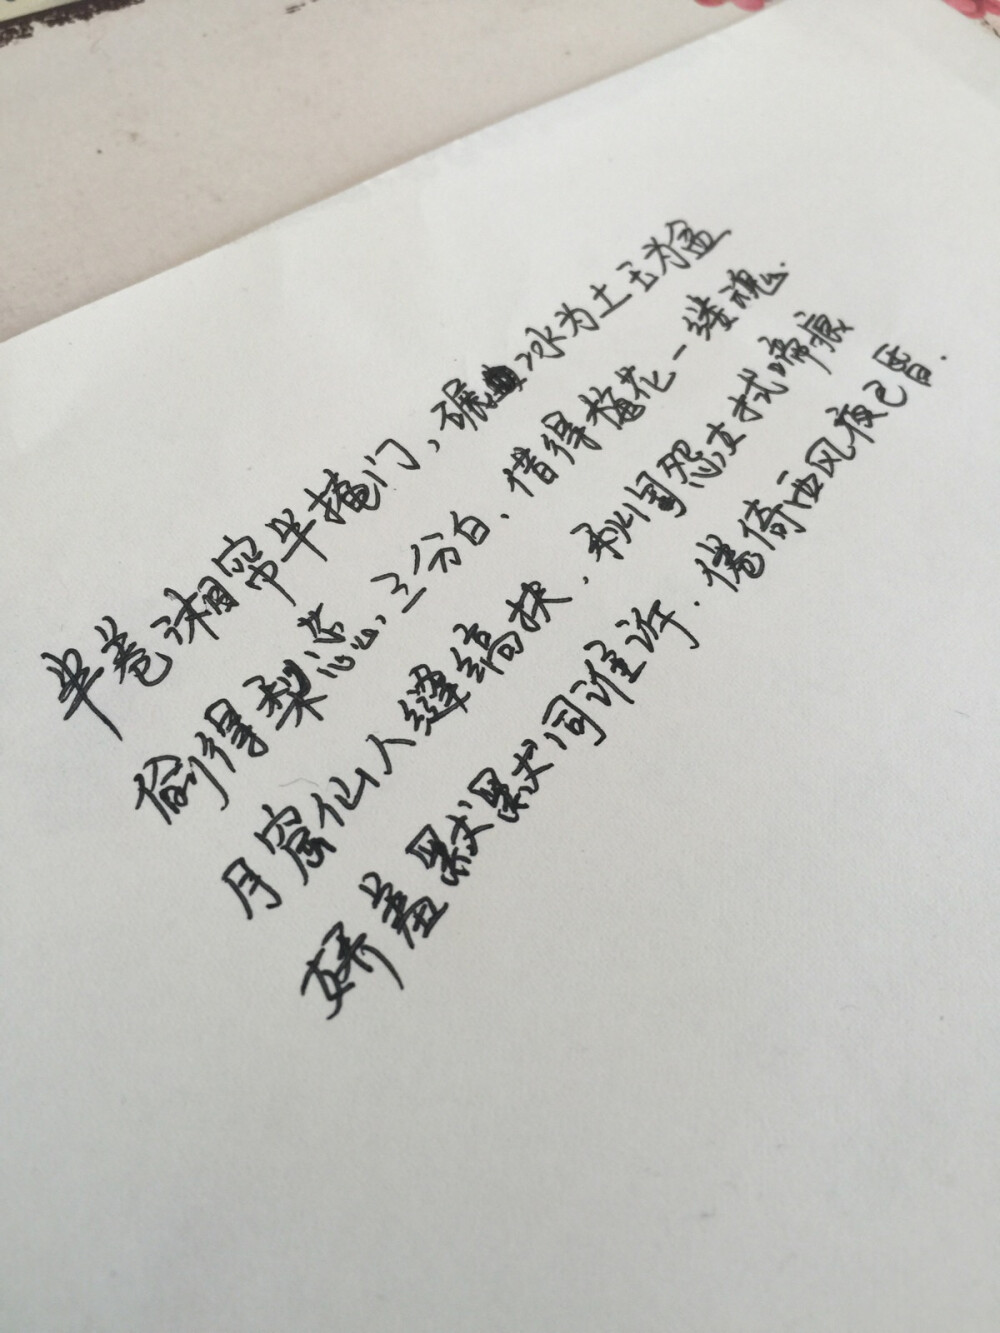 半卷湘帘半掩门，碾冰为土玉为盆
偷得梨蕊三分白、借得梅花一缕魂.
月窟仙人缝缟袂.秋闺怨女拭啼痕
娇羞默默同谁诉.倦倚西风夜已昏.